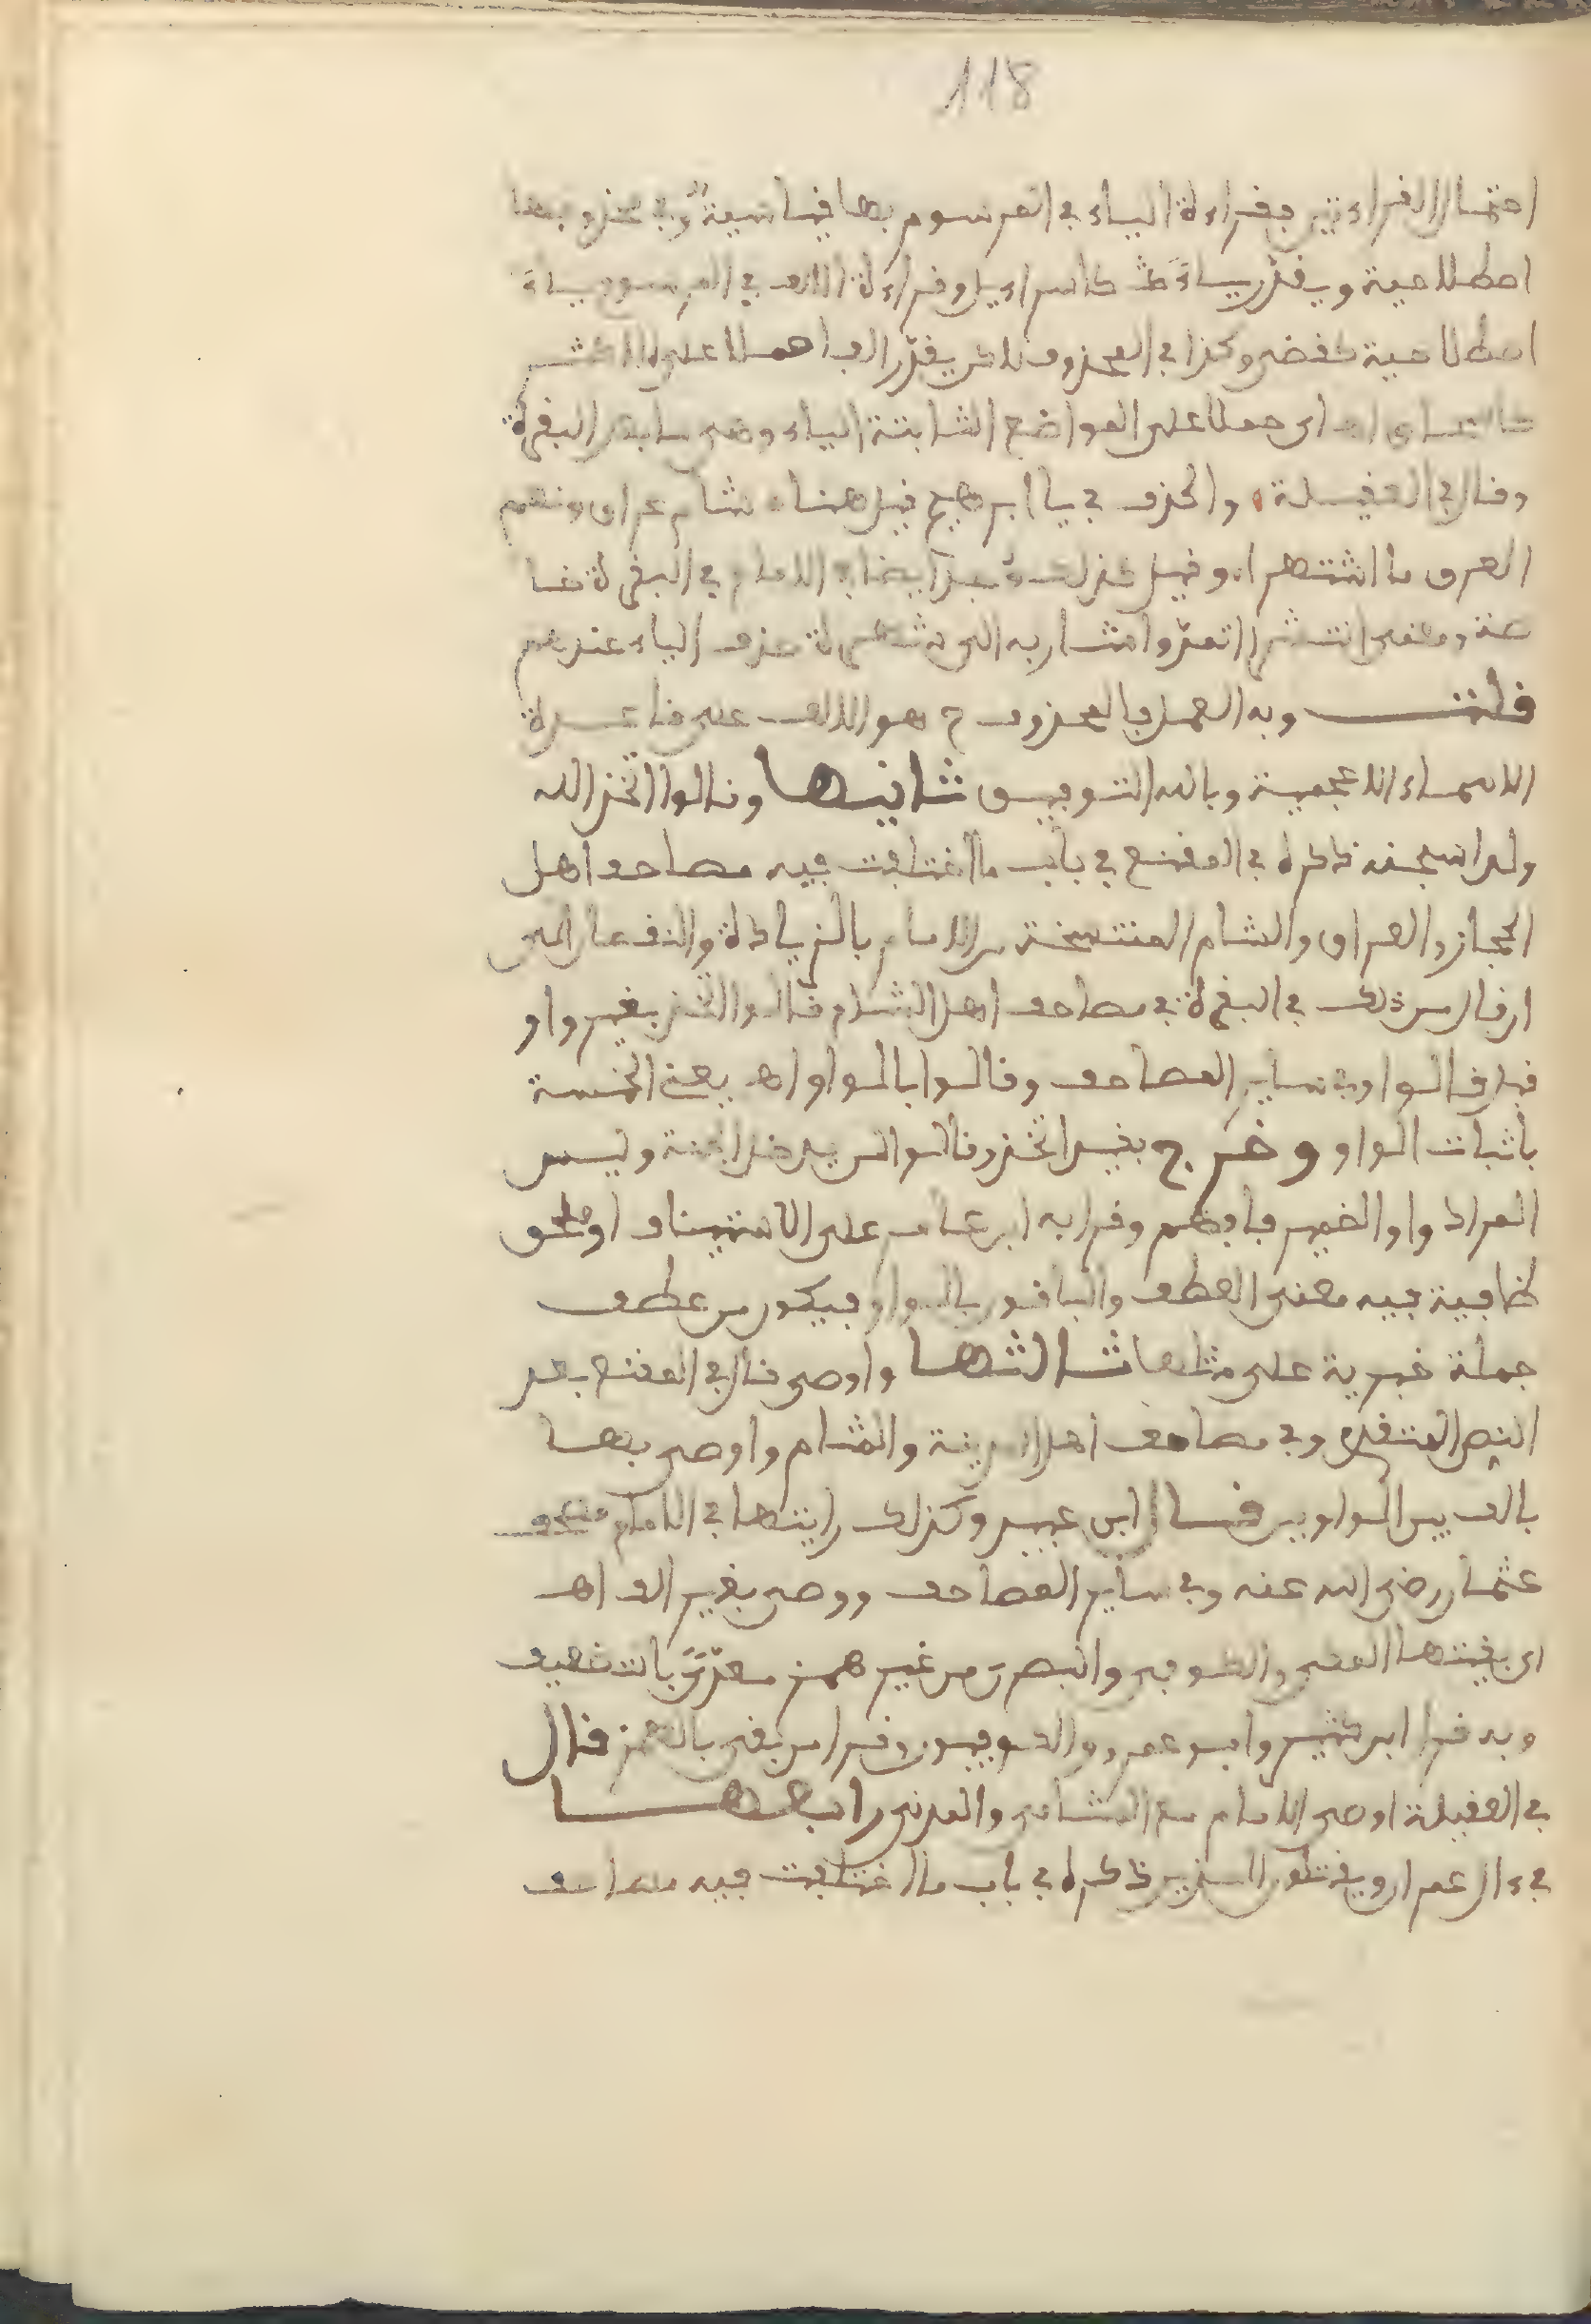 118
احتمال القراءتين فقراءة الياء في المرسوم بها قياسية وفي محذوفها
اصطلاحية ويقدر ياء كاسراءيل وقراءة الالف في المرسوم ياء
اصطلاحية كقضى وكذا في المحذوف لاكن يقدر الفا حملا على الاكثر
حملا على المواضع الثابتة الياء وهي ما بعد البقرة
وقال في العقيلة والحذف في يا ابرهيم قيل هنا شام عراق ونعم
العرق ما انتشرا وقيل الامام في البقرة خا
صة ومعنى انتشر به الى شهرة حذف الياء عندهم
قلت وبه العمل فالمحذوف ح هو الالف على قاعدة
الاسماء الاعجمية وبالله التوفيق ثانيها وقالوا اتخذ الله
ولدا سبحنه ذكره في المقنع في باب ما اختلفت فيه مصاحف اهل
الحجاز والعراق والشام المنتسخة من الامام بالزيادة والنقصان الى
ان قال من ذلك في البقرة في مصاحف اهل الشام قالوا اتخذ بغير واو
قبل قالوا وفي ساير المصاحف وقالوا بالواو اهـ يعني الخمسة
باثبات الواو وخرج بقيد اتخذ وقالوا لن يدخل الجنة وليس
المراد واو الضمير فافهم وقرا به ابن عامر على الاستيناف او ملحق
كافية فيه معنى العطف والباقون بالواو فيكون من عطف
جملة خبرية على مثلها ثالثها واوصى قال في المقنع بعد
النص المتقدم وفي مصاحف اهل المدينة والشام واوصى بها
بالف بين الواوين قال ابو عبيد وكذلك رايتها في الامام مصحف
عثمان رضي الله عنه وفي ساير المصاحف ووصى بغير الف اهـ
اي بقيتها المكي والكوفي والبصري من غير همز معدى بالتضعيف
وبه قرا ابن كثير وابو عمرو والكوفيون وقرا من بقي بالهمز قال
في العقيلة اوصى الامام مع الشامي والمدني رابعها
في ءال عمران ويقتلون الذين ذكره في باب ما اختلفت فيه مصاحف